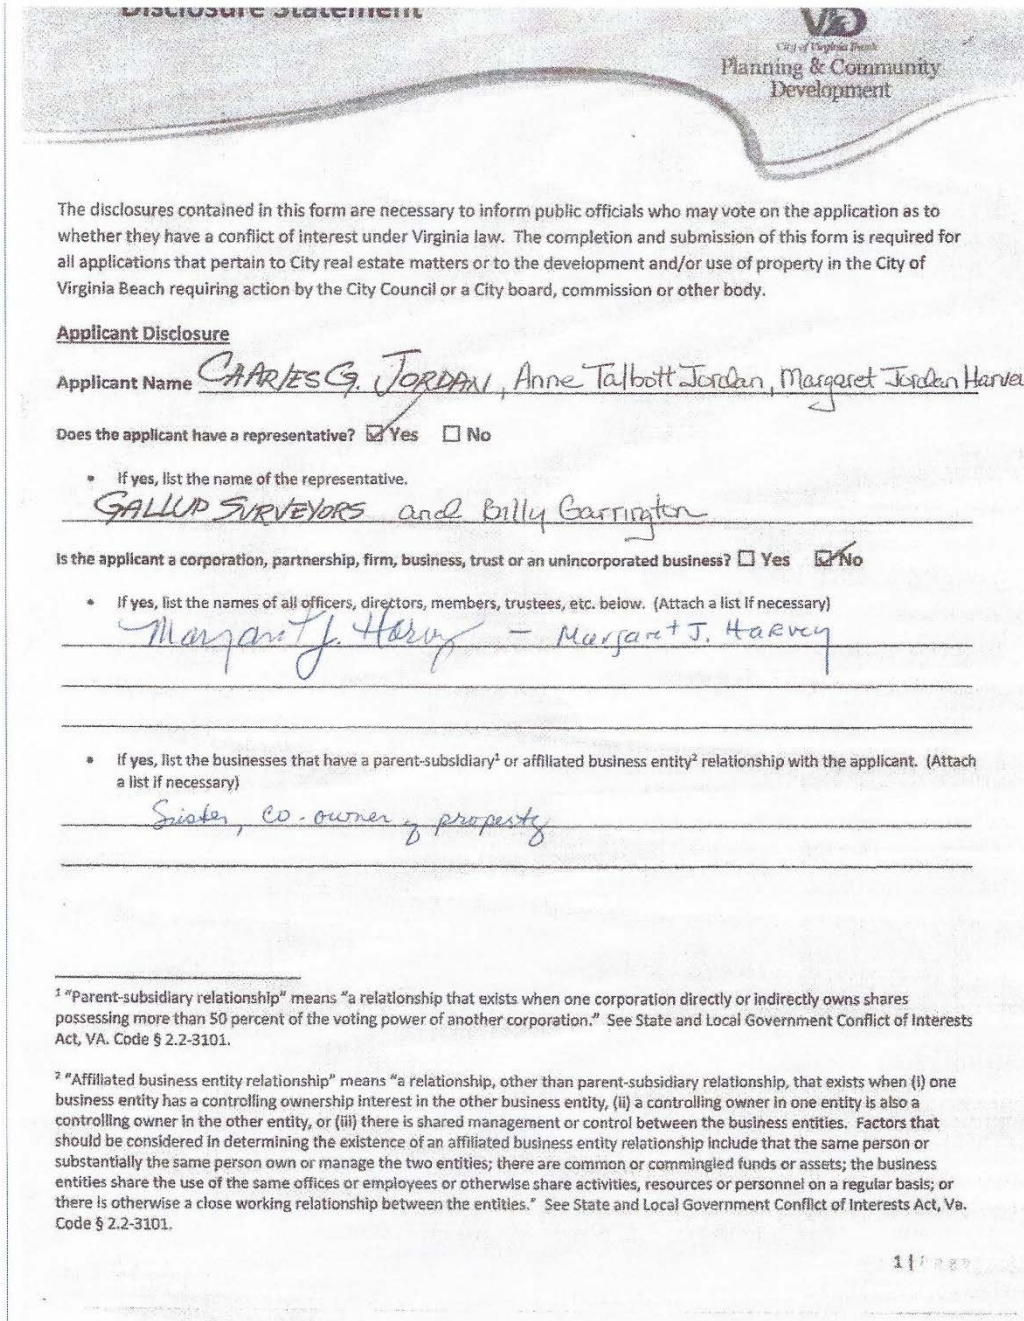 Disclosure Statement
VB
City of Virginia Beach
Planning & Community
Development
The disclosures contained in this form are necessary to inform public officials who may vote on the application as to
whether they have a conflict of interest under Virginia law. The completion and submission of this form is required for
all applications that pertain to City real estate matters or to the development and/or use of property in the City of
Virginia Beach requiring action by the City Council or a City board, commission or other body.
Applicant Disclosure
Applicant Name CHARLES G. JORDAN, Anne Talbott Jordan, Margaret Jordan Harve
Does the applicant have a representative? ☑ Yes ☐ No
• If yes, list the name of the representative.
GALLUP SURVEYORS and Billy Garrington
Is the applicant a corporation, partnership, firm, business, trust or an unincorporated business? ☐ Yes ☑ No
• If yes, list the names of all officers, directors, members, trustees, etc. below. (Attach a list if necessary)
Margaret J. Harvey – Margaret J. Harvey
• If yes, list the businesses that have a parent-subsidiary¹ or affiliated business entity² relationship with the applicant. (Attach
a list if necessary)
Sister, co-owner of property
¹ "Parent-subsidiary relationship" means "a relationship that exists when one corporation directly or indirectly owns shares
possessing more than 50 percent of the voting power of another corporation." See State and Local Government Conflict of Interests
Act, VA. Code § 2.2-3101.
² "Affiliated business entity relationship" means "a relationship, other than parent-subsidiary relationship, that exists when (i) one
business entity has a controlling ownership interest in the other business entity, (ii) a controlling owner in one entity is also a
controlling owner in the other entity, or (iii) there is shared management or control between the business entities. Factors that
should be considered in determining the existence of an affiliated business entity relationship include that the same person or
substantially the same person own or manage the two entities; there are common or commingled funds or assets; the business
entities share the use of the same offices or employees or otherwise share activities, resources or personnel on a regular basis; or
there is otherwise a close working relationship between the entities." See State and Local Government Conflict of Interests Act, Va.
Code § 2.2-3101.
1 | Page